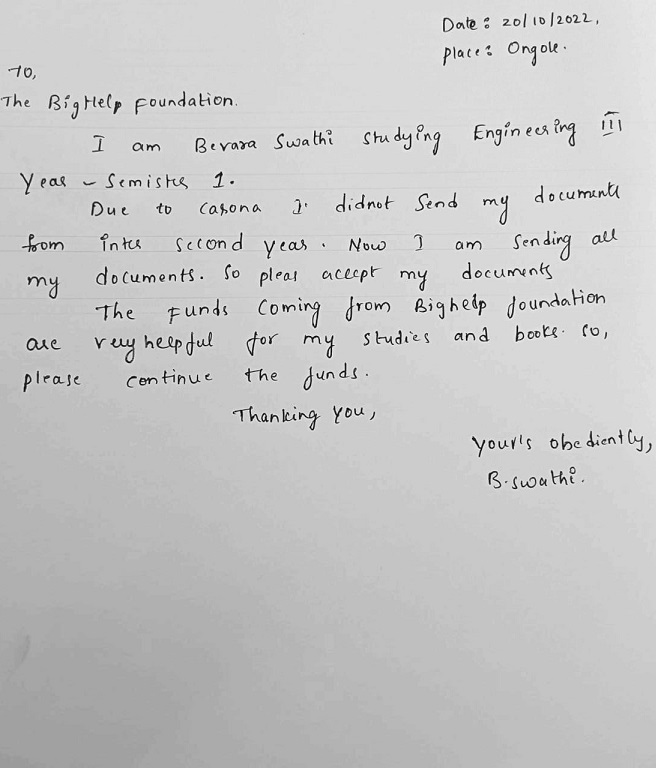 Date : 20/10/2022,
place : Ongole.
To,
The Big Help Foundation.
I am Bevara Swathi studying Engineering III
Year - Semister 1.
Due to carona I didnot send my documents
from inter second year. Now I am sending all
my documents. So pleas accept my documents
The Funds coming from Bighelp foundation
are very helpful for my studies and books. so,
please continue the funds.
Thanking you,
your's obediently,
B. swathi.